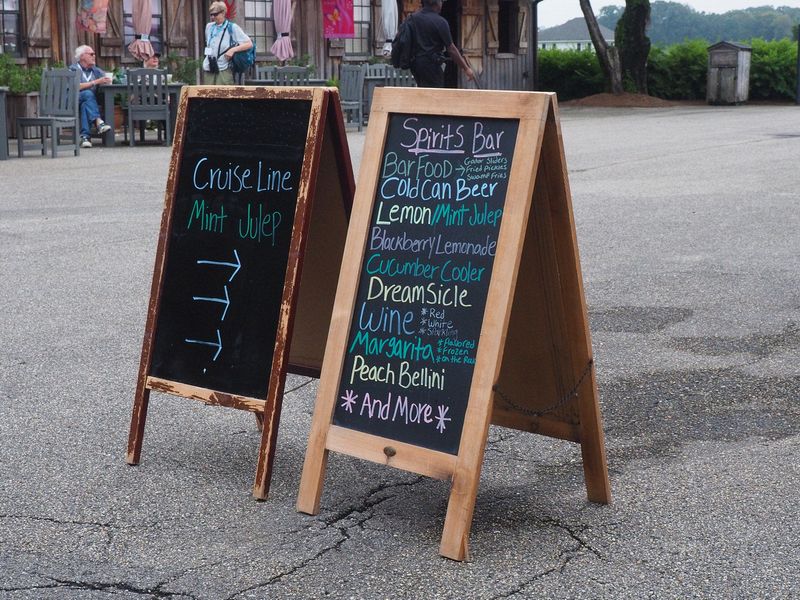 Cruise Line
Mint Julep
Spirits Bar
Bar Food → Gator Sliders
Fried Pickles
Swamp Fries
Cold Can Beer
Lemon/Mint Julep
Blackberry Lemonade
Cucumber Cooler
Dreamsicle
Wine *Red
*White
*Sparkling
Margarita *Flavored
*Frozen
*on the Rocks
Peach Bellini
*And More*